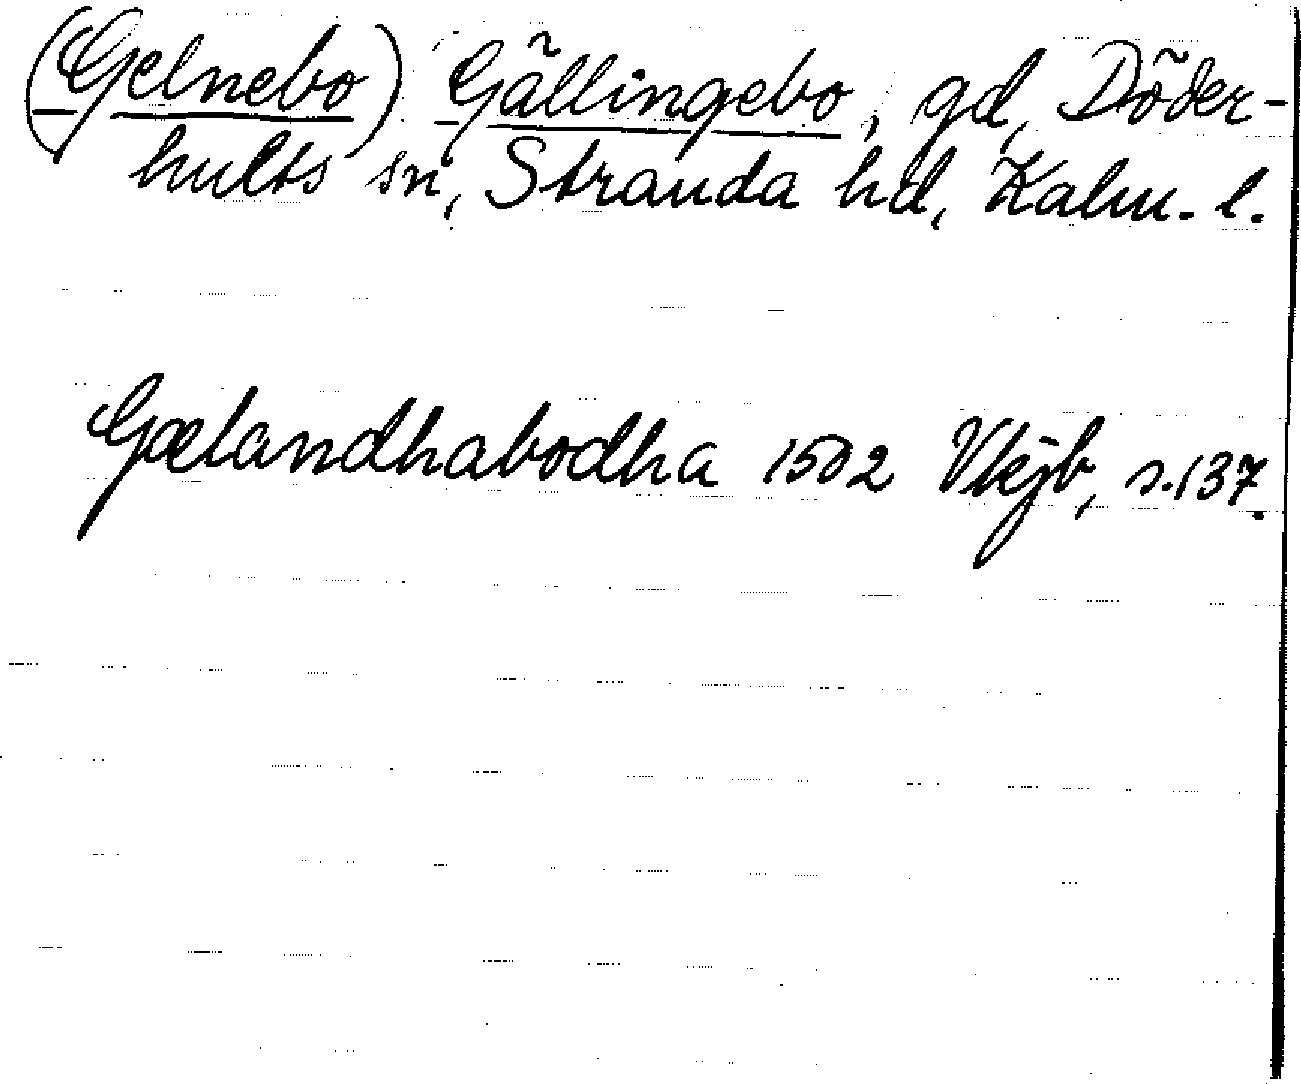 (Gelnebo) Gällingebo, gd, Döder-
hults sn, Stranda hd, Kalm. l.
Gælandhabodha 1502 Vkjb, s. 137.